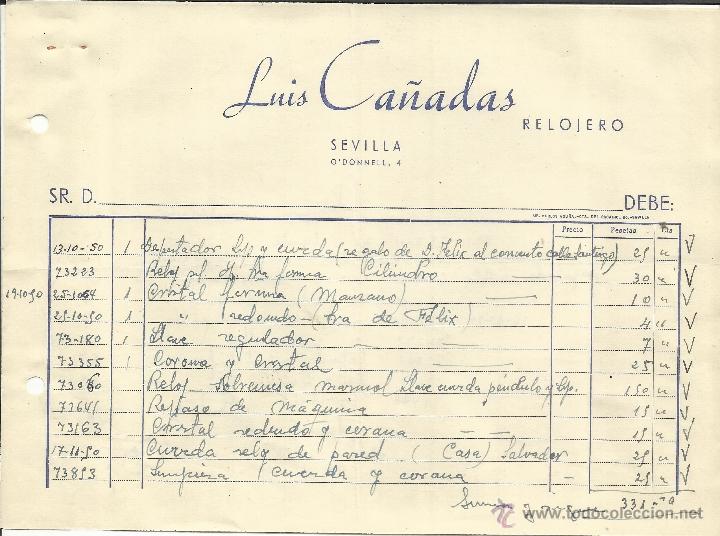 Luis Cañadas
RELOJERO
SEVILLA
O'DONNELL, 4
SR. D. DEBE:
Precio Pesetas Cts
13-10-50 1 Despertador Lip y cuerda (regalo de D. Felix al convento calle Santiago) 25 "
73223 Reloj forma Cilindro 30 "
19-10-50 25-10-64 1 Cristal forma (Manzano) 10 "
25-10-50 1 " redondo (tra de Felix) 4 "
73-180 1 Llave regulador 7 "
73355 1 Corona y cristal 25 "
73060 Reloj Sobremesa marmol Llave cuerda péndulo y Lip. 150 "
73641 Repaso de máquina 15 "
73163 Cristal redondo y corona 15 "
17-11-50 Cuerda reloj de pared (Casa) Salvador 25 "
73893 Limpieza cuerda y corona 25 "
331
www.todocoleccion.net